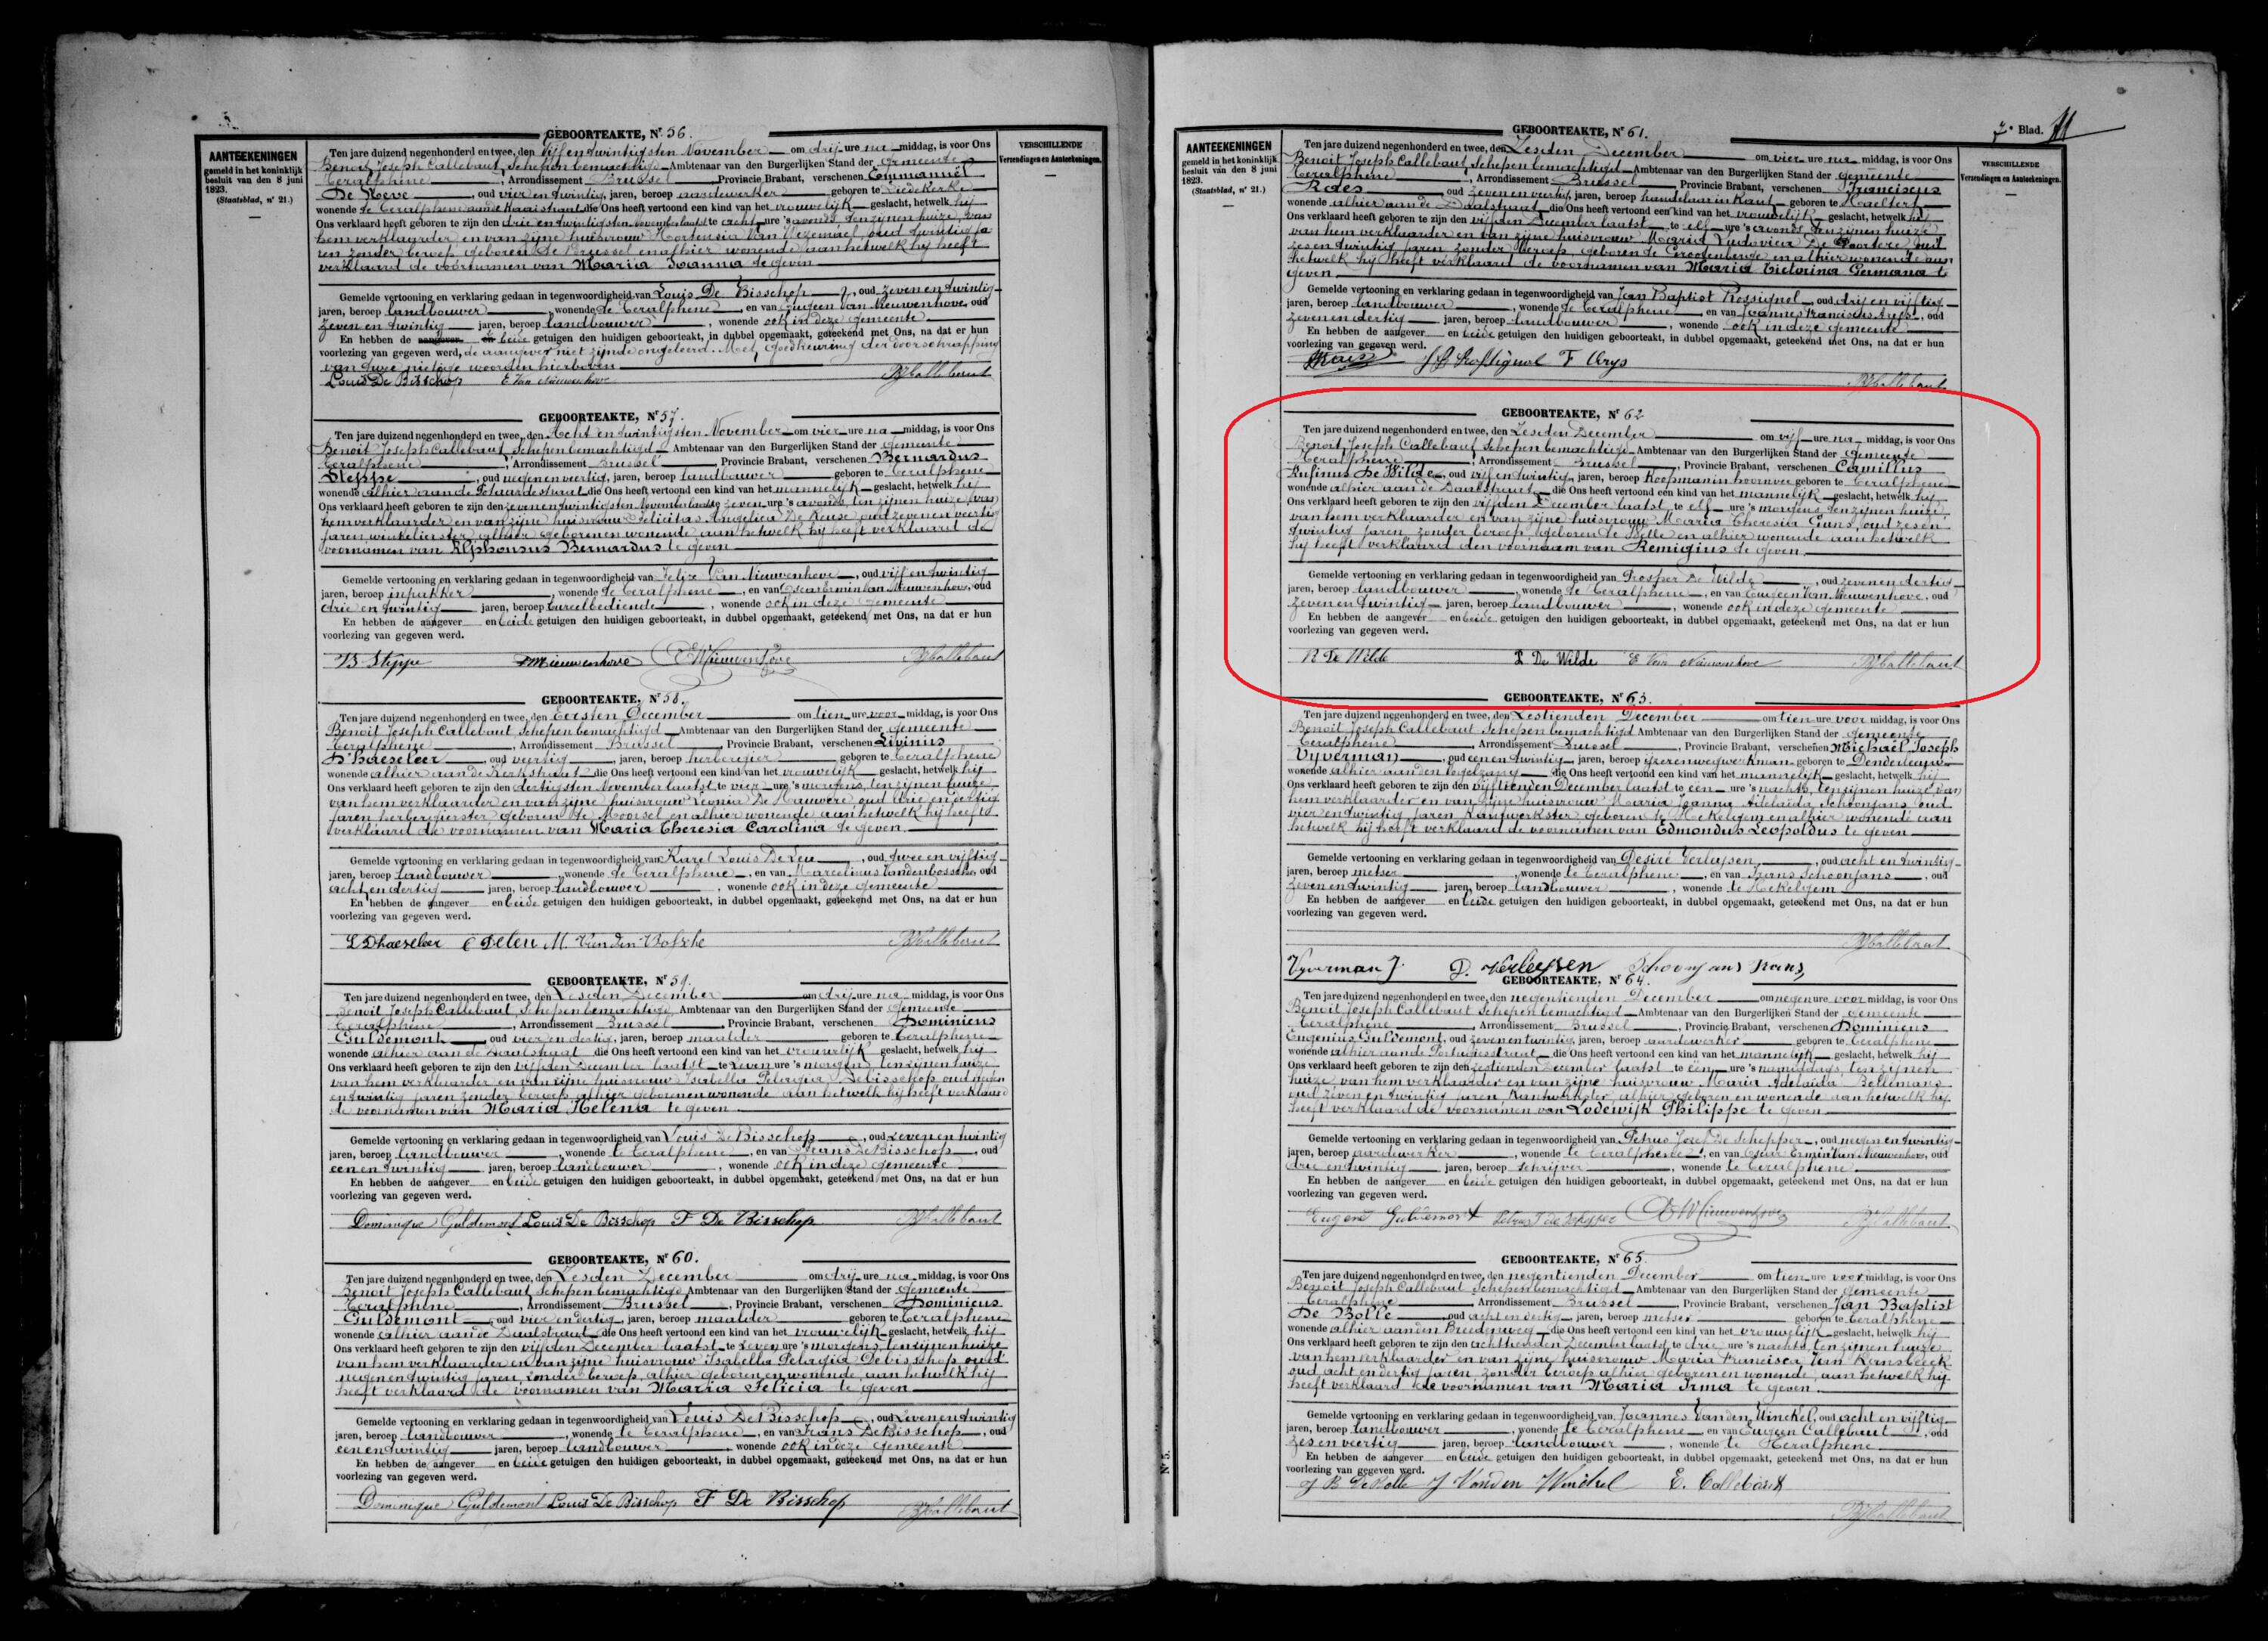 GEBOORTEAKTE, Nr 56.
AANTEEKENINGEN
gemeld in het koninklijk
besluit van den 8 juni
1823.
(Staatsblad, n° 21.)
VERSCHILLENDE
Verzendingen en Aanteekeningen.
Ten jare duizend negenhonderd en twee, den Vijf en twintigsten November om drij ure na middag, is voor Ons
Benoit Joseph Callebaut, Schepen bemachtigd Ambtenaar van den Burgerlijken Stand der Gemeente
Teralphene, Arrondissement Brussel, Provincie Brabant, verschenen Emmanuël
De Neve, oud vier en twintig, jaren, beroep aardewerker geboren te Liedekerke
wonende te Teralphene aan de Kraaistraat die Ons heeft vertoond een kind van het vrouwelijk geslacht, hetwelk hij
Ons verklaard heeft geboren te zijn den drie en twintigsten November laatst te acht ure 's avonds ten zijnen huize, van
hem verklaarder en van zijne huisvrouw Hortensia Van Wezemael, oud twintig ja
ren zonder beroep geboren te Brussel en alhier wonende aan hetwelk hij heeft
verklaard de voornamen van Maria Joanna te geven
Gemelde vertooning en verklaring gedaan in tegenwoordigheid van Louis De Bisschop, oud zeven en twintig
jaren, beroep landbouwer, wonende te Teralphene, en van Eugeen Van Nieuwenhove, oud
zeven en twintig jaren, beroep landbouwer, wonende ook in deze gemeente
En hebben de aangever en beide getuigen den huidigen geboorteakt, in dubbel opgemaakt, geteekend met Ons, na dat er hun
voorlezing van gegeven werd, de aangever niet zijnde ongeleerd. Met goedkeuring der doorschrapping
van twee nietige woorden hierboven
Louis De Bisschop E Van Nieuwenhove BJCallebaut
GEBOORTEAKTE, Nr 57.
Ten jare duizend negenhonderd en twee, den Acht en twintigsten November om vier ure na middag, is voor Ons
Benoit Joseph Callebaut Schepen bemachtigd Ambtenaar van den Burgerlijken Stand der gemeente
Teralphene, Arrondissement Brussel, Provincie Brabant, verschenen Bernardus
Steppe, oud negen en veertig, jaren, beroep landbouwer geboren te Teralphene
wonende alhier aan de straat die Ons heeft vertoond een kind van het mannelijk geslacht, hetwelk hij
Ons verklaard heeft geboren te zijn den zeven en twintigsten November laatst te zeven ure 's avonds, ten zijnen huize, van
hem verklaarder en van zijne huisvrouw Felicitas Angelica De Reuse oud zeven en veertig
jaren winkelierster, alhier geboren en wonende aan hetwelk hij heeft verklaard de
voornamen van Alphonsus Bernardus te geven
Gemelde vertooning en verklaring gedaan in tegenwoordigheid van Felix Van Nieuwenhove, oud vijf en twintig
jaren, beroep inpakker, wonende te Teralphene, en van Oscar Ermin Van Nieuwenhove, oud
drie en twintig jaren, beroep bureelbediende, wonende ook in deze gemeente
En hebben de aangever en beide getuigen den huidigen geboorteakt, in dubbel opgemaakt, geteekend met Ons, na dat er hun
voorlezing van gegeven werd.
B Steppe Nieuwenhove Nieuwenhove BJCallebaut
GEBOORTEAKTE, Nr 58.
Ten jare duizend negenhonderd en twee, den Eersten December om tien ure voor middag, is voor Ons
Benoit Joseph Callebaut Schepen bemachtigd Ambtenaar van den Burgerlijken Stand der gemeente
Teralphene, Arrondissement Brussel, Provincie Brabant, verschenen Livinius
D'haeseleer, oud veertig, jaren, beroep herbergier geboren te Teralphene
wonende alhier aan de Kerkstraat die Ons heeft vertoond een kind van het vrouwelijk geslacht, hetwelk hij
Ons verklaard heeft geboren te zijn den dertigsten November laatst te vier ure 's morgens, ten zijnen huize
van hem verklaarder en van zijne huisvrouw Leonia De Brauwere oud drie en dertig
jaren herbergierster geboren te Moorsel en alhier wonende aan hetwelk hij heeft
verklaard de voornamen van Maria Theresia Carolina te geven
Gemelde vertooning en verklaring gedaan in tegenwoordigheid van Karel Louis De Leu, oud twee en vijftig
jaren, beroep landbouwer, wonende te Teralphene, en van Marcelinus Vandenbossche, oud
acht en dertig jaren, beroep landbouwer, wonende ook in deze gemeente
En hebben de aangever en beide getuigen den huidigen geboorteakt, in dubbel opgemaakt, geteekend met Ons, na dat er hun
voorlezing van gegeven werd.
L Dhaeseleer C Deleu M. Van den Bossche BJCallebaut
GEBOORTEAKTE, Nr 59.
Ten jare duizend negenhonderd en twee, den Zesden December om drij ure na middag, is voor Ons
Benoit Joseph Callebaut, Schepen bemachtigd, Ambtenaar van den Burgerlijken Stand der gemeente
Teralphene, Arrondissement Brussel, Provincie Brabant, verschenen Dominicus
Guldemont, oud vier en dertig, jaren, beroep maalder geboren te Teralphene
wonende alhier aan de Daalstraat die Ons heeft vertoond een kind van het vrouwelijk geslacht, hetwelk hij
Ons verklaard heeft geboren te zijn den vijfden December laatst te zeven ure 's morgens, ten zijnen huize
van hem verklaarder en van zijne huisvrouw Isabella Pelagia Debisschop oud negen
en twintig jaren zonder beroep, alhier geboren en wonende aan hetwelk hij heeft verklaard
de voornamen van Maria Helena te geven
Gemelde vertooning en verklaring gedaan in tegenwoordigheid van Louis De Bisschop, oud zeven en twintig
jaren, beroep landbouwer, wonende te Teralphene, en van Frans De Bisschop, oud
een en twintig jaren, beroep landbouwer, wonende ook in deze gemeente
En hebben de aangever en beide getuigen den huidigen geboorteakt, in dubbel opgemaakt, geteekend met Ons, na dat er hun
voorlezing van gegeven werd.
Dominique Guldemont Louis De Bisschop F De Bisschop BJCallebaut
GEBOORTEAKTE, Nr 60.
Ten jare duizend negenhonderd en twee, den Zesden December om drij ure na middag, is voor Ons
Benoit Joseph Callebaut, Schepen bemachtigd Ambtenaar van den Burgerlijken Stand der gemeente
Teralphene, Arrondissement Brussel, Provincie Brabant, verschenen Dominicus
Guldemont, oud vier en dertig, jaren, beroep maalder geboren te Teralphene
wonende alhier aan de Daalstraat die Ons heeft vertoond een kind van het vrouwelijk geslacht, hetwelk hij
Ons verklaard heeft geboren te zijn den vijfden December laatst te zeven ure 's morgens, ten zijnen huize
van hem verklaarder en van zijne huisvrouw Isabella Pelagia Debisschop oud
negen en twintig jaren zonder beroep, alhier geboren en wonende, aan hetwelk hij
heeft verklaard de voornamen van Maria Felicia te geven
Gemelde vertooning en verklaring gedaan in tegenwoordigheid van Louis De Bisschop, oud zeven en twintig
jaren, beroep landbouwer, wonende te Teralphene, en van Frans De Bisschop, oud
een en twintig jaren, beroep landbouwer, wonende ook in deze gemeente
En hebben de aangever en beide getuigen den huidigen geboorteakt, in dubbel opgemaakt, geteekend met Ons, na dat er hun
voorlezing van gegeven werd.
Dominique Guldemont Louis De Bisschop F De Bisschop BJCallebaut
Blad. 11
GEBOORTEAKTE, Nr 61.
AANTEEKENINGEN
gemeld in het koninklijk
besluit van den 8 juni
1823.
(Staatsblad, n° 21.)
VERSCHILLENDE
Verzendingen en Aanteekeningen.
Ten jare duizend negenhonderd en twee, den Zesden December om vier ure na middag, is voor Ons
Benoit Joseph Callebaut, Schepen bemachtigd Ambtenaar van den Burgerlijken Stand der gemeente
Teralphene, Arrondissement Brussel, Provincie Brabant, verschenen Franciscus
Raes, oud zeven en veertig, jaren, beroep handelaar in Kant geboren te Haeltert
wonende alhier aan de Daalstraat die Ons heeft vertoond een kind van het vrouwelijk geslacht, hetwelk hij
Ons verklaard heeft geboren te zijn den vijfden December laatst, te elf ure 's avonds ten zijnen huize
van hem verklaarder en van zijne huisvrouw Maria Ludovica De Poortere oud
zes en twintig jaren zonder beroep, geboren te Grootenberge en alhier wonende aan
hetwelk hij heeft verklaard de voornamen van Maria Victorina Germana te
geven
Gemelde vertooning en verklaring gedaan in tegenwoordigheid van Jan Baptist Rossignol, oud drij en vijftig
jaren, beroep landbouwer, wonende te Teralphene, en van Joannes Franciscus Arys, oud
zeven en dertig jaren, beroep landbouwer, wonende ook in deze gemeente
En hebben de aangever en beide getuigen den huidigen geboorteakt, in dubbel opgemaakt, geteekend met Ons, na dat er hun
voorlezing van gegeven werd.
Raes J B Rossignol F Arys
BJCallebaut
GEBOORTEAKTE, Nr 62
Ten jare duizend negenhonderd en twee, den Zesden December om vijf ure na middag, is voor Ons
Benoit Joseph Callebaut Schepen bemachtigd Ambtenaar van den Burgerlijken Stand der gemeente
Teralphene, Arrondissement Brussel, Provincie Brabant, verschenen Camillus
Rufinus De Wilde, oud vijf en twintig, jaren, beroep Koopman in hoornvee geboren te Teralphene
wonende alhier aan de Daalstraat, die Ons heeft vertoond een kind van het mannelijk geslacht, hetwelk hij
Ons verklaard heeft geboren te zijn den vijfden December laatst, te elf ure 's morgens ten zijnen huize
van hem verklaarder en van zijne huisvrouw Maria Theresia Guns, oud zes en
twintig jaren zonder beroep, geboren te Belle en alhier wonende aan hetwelk
hij heeft verklaard den voornaam van Remigius te geven
Gemelde vertooning en verklaring gedaan in tegenwoordigheid van Prosper De Wilde, oud zeven en dertig
jaren, beroep landbouwer, wonende te Teralphene, en van Eugeen Van Nieuwenhove, oud
zeven en twintig jaren, beroep landbouwer, wonende ook in deze gemeente
En hebben de aangever en beide getuigen den huidigen geboorteakt, in dubbel opgemaakt, geteekend met Ons, na dat er hun
voorlezing van gegeven werd.
R De Wilde P. De Wilde E Van Nieuwenhove BJCallebaut
GEBOORTEAKTE, Nr 63.
Ten jare duizend negenhonderd en twee, den Zestienden December om tien ure voor middag, is voor Ons
Benoit Joseph Callebaut Schepen bemachtigd Ambtenaar van den Burgerlijken Stand der gemeente
Teralphene, Arrondissement Brussel, Provincie Brabant, verschenen Michaël Joseph
Vyverman, oud een en twintig, jaren, beroep yzerenwegwerkman geboren te Denderleeuw
wonende alhier aan den Vogelzang die Ons heeft vertoond een kind van het mannelijk geslacht, hetwelk hij
Ons verklaard heeft geboren te zijn den vijftienden December laatst te een ure 's nachts, ten zijnen huize, van
hem verklaarder en van zijne huisvrouw Maria Joanna Adelaïda Schoonjans oud
vier en twintig jaren Kantwerkster geboren te Hekelgem en alhier wonende aan
hetwelk hij heeft verklaard de voornamen van Edmondus Leopoldus te geven
Gemelde vertooning en verklaring gedaan in tegenwoordigheid van Desiré Verleysen, oud acht en twintig
jaren, beroep metser, wonende te Teralphene, en van Frans Schoonjans, oud
zeven en twintig jaren, beroep landbouwer, wonende te Hekelgem
En hebben de aangever en beide getuigen den huidigen geboorteakt, in dubbel opgemaakt, geteekend met Ons, na dat er hun
voorlezing van gegeven werd.
BJCallebaut
Vyverman J. D. Verleysen Schoonjans Frans
GEBOORTEAKTE, Nr 64.
Ten jare duizend negenhonderd en twee, den negentienden December om negen ure voor middag, is voor Ons
Benoit Joseph Callebaut Schepen bemachtigd Ambtenaar van den Burgerlijken Stand der gemeente
Teralphene, Arrondissement Brussel, Provincie Brabant, verschenen Dominicus
Eugenius Guldemont, oud zeven en twintig, jaren, beroep aardewerker geboren te Teralphene
wonende alhier aan de straat die Ons heeft vertoond een kind van het mannelijk geslacht, hetwelk hij
Ons verklaard heeft geboren te zijn den zestienden December laatst te een ure 's namiddags, ten zijnen
huize van hem verklaarder en van zijne huisvrouw Maria Adelaida Bellemans
oud zeven en twintig jaren, Kantwerkster, alhier geboren en wonende aan hetwelk hij
heeft verklaard de voornamen van Lodewijk Philippe te geven
Gemelde vertooning en verklaring gedaan in tegenwoordigheid van Petrus Josef De Schepper, oud negen en twintig
jaren, beroep aardewerker, wonende te Teralphene, en van Oscar Ermin Van Nieuwenhove, oud
drie en twintig jaren, beroep schrijver, wonende te Teralphene
En hebben de aangever en beide getuigen den huidigen geboorteakt, in dubbel opgemaakt, geteekend met Ons, na dat er hun
voorlezing van gegeven werd.
Eugene Guldemont Petrus J de Schepper Nieuwenhove BJCallebaut
GEBOORTEAKTE, Nr 65.
Ten jare duizend negenhonderd en twee, den negentienden December om tien ure voor middag, is voor Ons
Benoit Joseph Callebaut Schepen bemachtigd Ambtenaar van den Burgerlijken Stand der gemeente
Teralphene, Arrondissement Brussel, Provincie Brabant, verschenen Jan Baptist
De Bolle, oud acht en dertig, jaren, beroep metser geboren te Teralphene
wonende alhier aan den Breedenweg die Ons heeft vertoond een kind van het vrouwelijk geslacht, hetwelk hij
Ons verklaard heeft geboren te zijn den achttienden December laatst, te drie ure 's nachts, ten zijnen huize
van hem verklaarder en van zijne huisvrouw Maria Francisca Van Ransbeeck
oud acht en dertig jaren zonder beroep alhier geboren en wonende, aan hetwelk hij
heeft verklaard de voornamen van Maria Irma te geven
Gemelde vertooning en verklaring gedaan in tegenwoordigheid van Joannes Vanden Winckel, oud acht en vijftig
jaren, beroep landbouwer, wonende te Teralphene, en van Eugeen Callebaut, oud
zes en veertig jaren, beroep landbouwer, wonende te Teralphene
En hebben de aangever en beide getuigen den huidigen geboorteakt, in dubbel opgemaakt, geteekend met Ons, na dat er hun
voorlezing van gegeven werd.
J B De Bolle J Vanden Winckel E. Callebaut
BJCallebaut
N° 5.